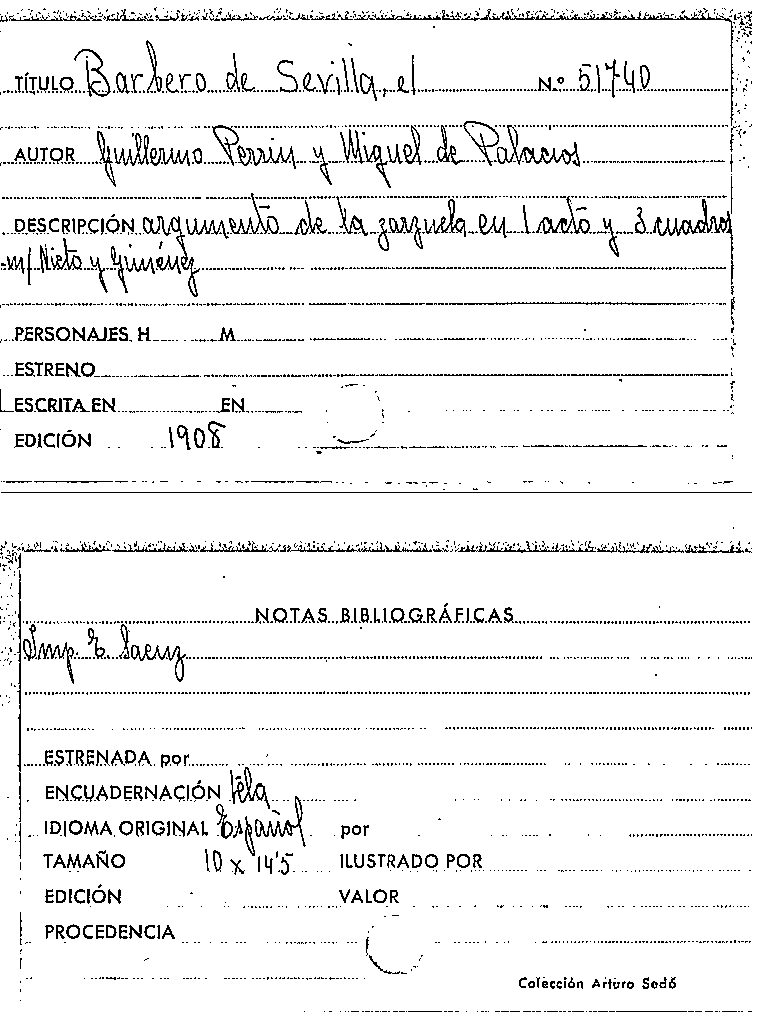 TÍTULO Barbero de Sevilla, el N.º 51740
AUTOR Guillermo Perrin y Miguel de Palacios
DESCRIPCIÓN argumento de la zarzuela en 1 acto y 3 cuadros
m/ Nieto y Giménez
PERSONAJES H M
ESTRENO
ESCRITA EN EN
EDICIÓN 1908
NOTAS BIBLIOGRÁFICAS
Imp. E. Saenz
ESTRENADA por
ENCUADERNACIÓN tela
IDIOMA ORIGINAL Español por
TAMAÑO 10 x 14'5 ILUSTRADO POR
EDICIÓN VALOR
PROCEDENCIA
Colección Arturo Sedó